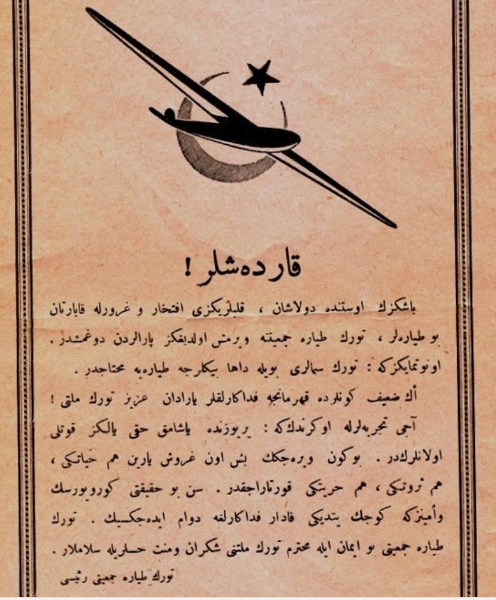 قارده‌شلر !
باشكزك اوستنده دولاشان ، قلبلريكزى افتخار و غرورله قابارتان
بو طياره‌لر ، تورك طياره جمعيتنه ويرمش اولديغكز پارالردن دوغمشدر .
اونوتمايكزكه : تورك سمالرى بويله داها بيكلرجه طياره‌يه محتاجدر .
أك ضعيف كونلرده قهرمانجه فداكارلقلر يارادان عزيز تورك ملتى !
آجى تجربه‌لرله اوكرندك‌كه : ير يوزنده ياشامق حقى يالكز قوتلى
اولانلركدر . بوكون ويره‌جكك بش اون غروش يارين هم حياتكى ،
هم ثروتكى ، هم حريتكى قورتاراجقدر . سن بو حقيقتى كورويورسك
وأمينزكه كوجك يتديكى قادار فداكارلغه دوام ايده‌جكسك . تورك
طياره جمعيتى بو ايمان ايله محترم تورك ملتنى شكران ومنت حسلريله سلاملار .
تورك طياره جمعيتى رئيسى